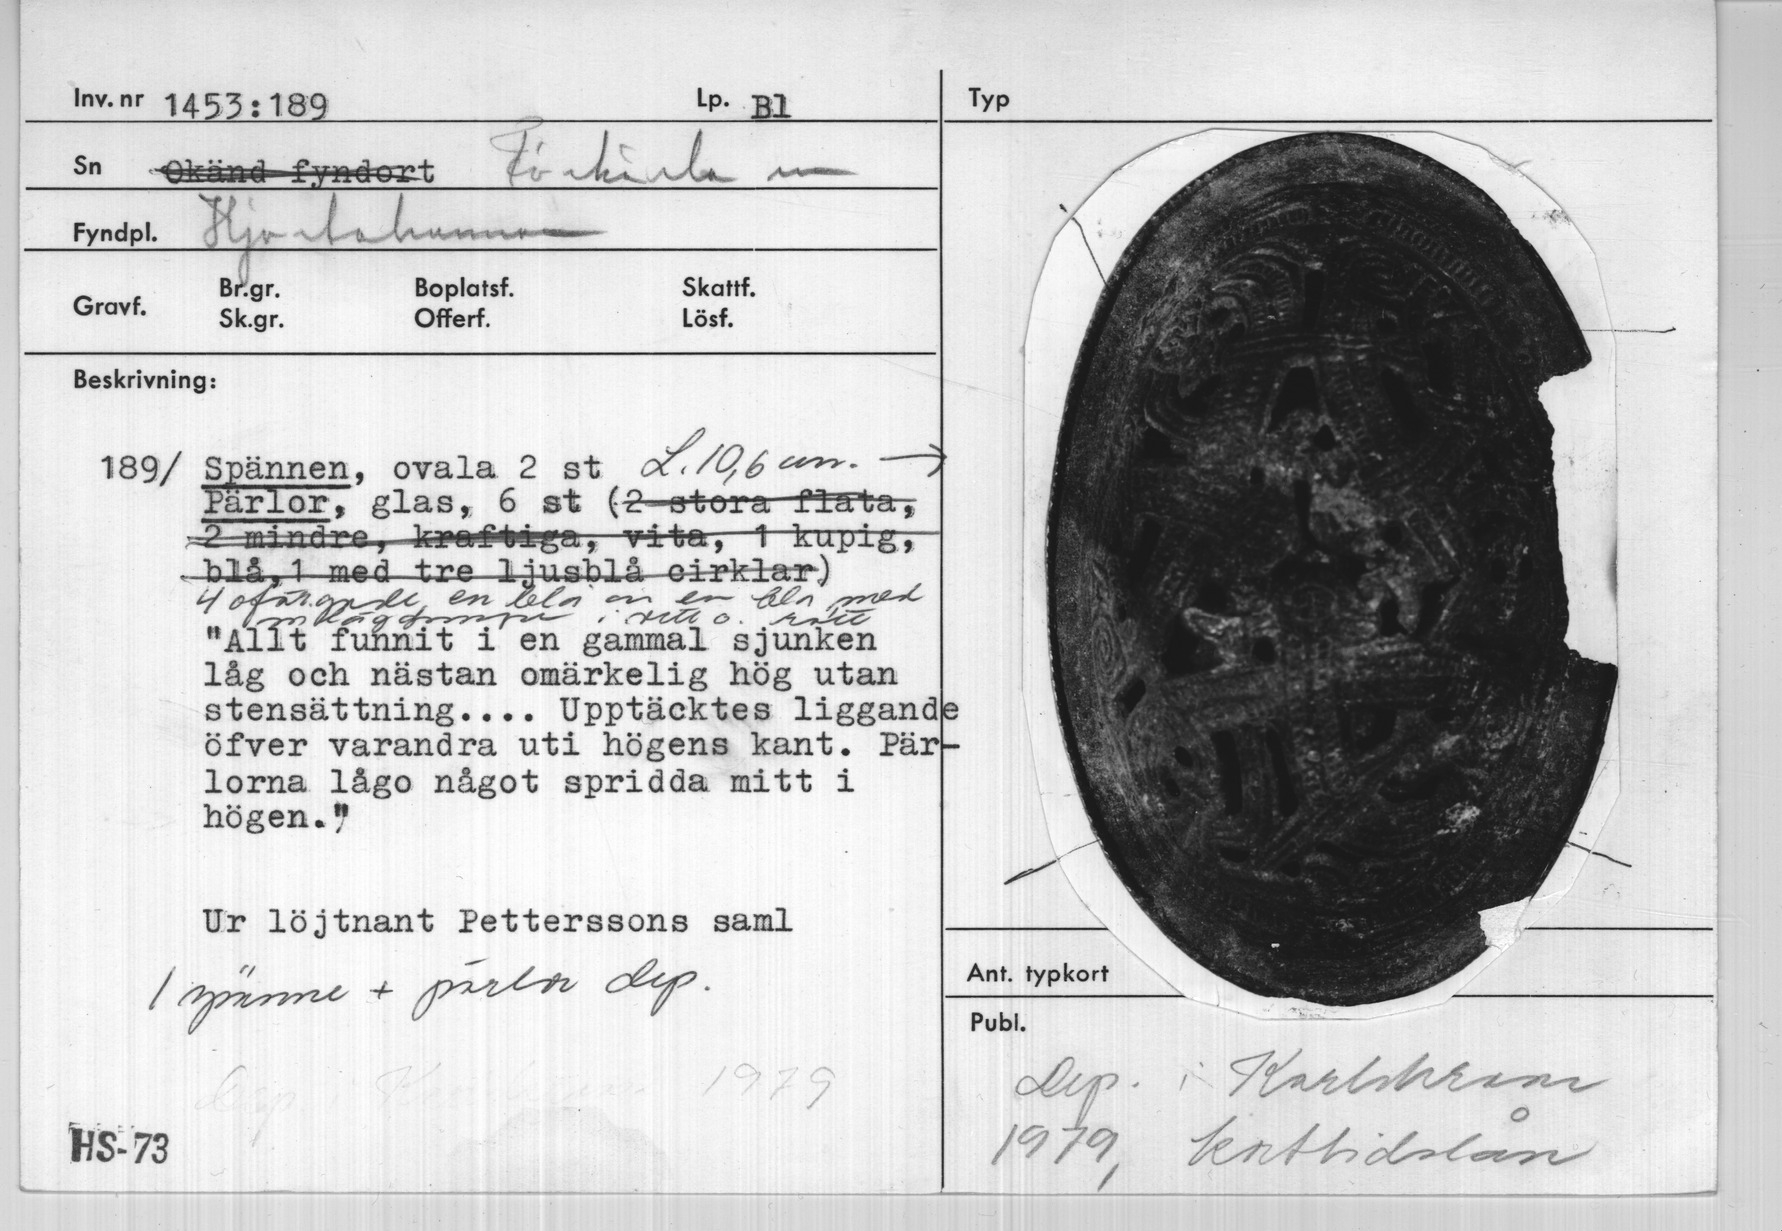 Inv. nr 1453:189 Lp. Bl
Sn Okänd fyndort Förkärla sn
Fyndpl. Hjortahammar
Gravf. Br.gr. Boplatsf. Skattf.
Sk.gr. Offerf. Lösf.
Beskrivning:
189/ Spännen, ovala 2 st L. 10,6 cm. →
Pärlor, glas, 6 st (2 stora flata,
2 mindre, kraftiga, vita, 1 kupig,
blå, 1 med tre ljusblå cirklar)
4 ofärgade, en blå en blå med
i vitt o. rött
"Allt funnit i en gammal sjunken
låg och nästan omärkelig hög utan
stensättning.... Upptäcktes liggande
öfver varandra uti högens kant. Pär-
lorna lågo något spridda mitt i
högen."
Ur löjtnant Petterssons saml
1 spänne + pärlor dep.
Dep i Karlskrona 1979
HS-73
Typ
Ant. typkort
Publ.
Dep. i Karlskrona
1979, korttidslån